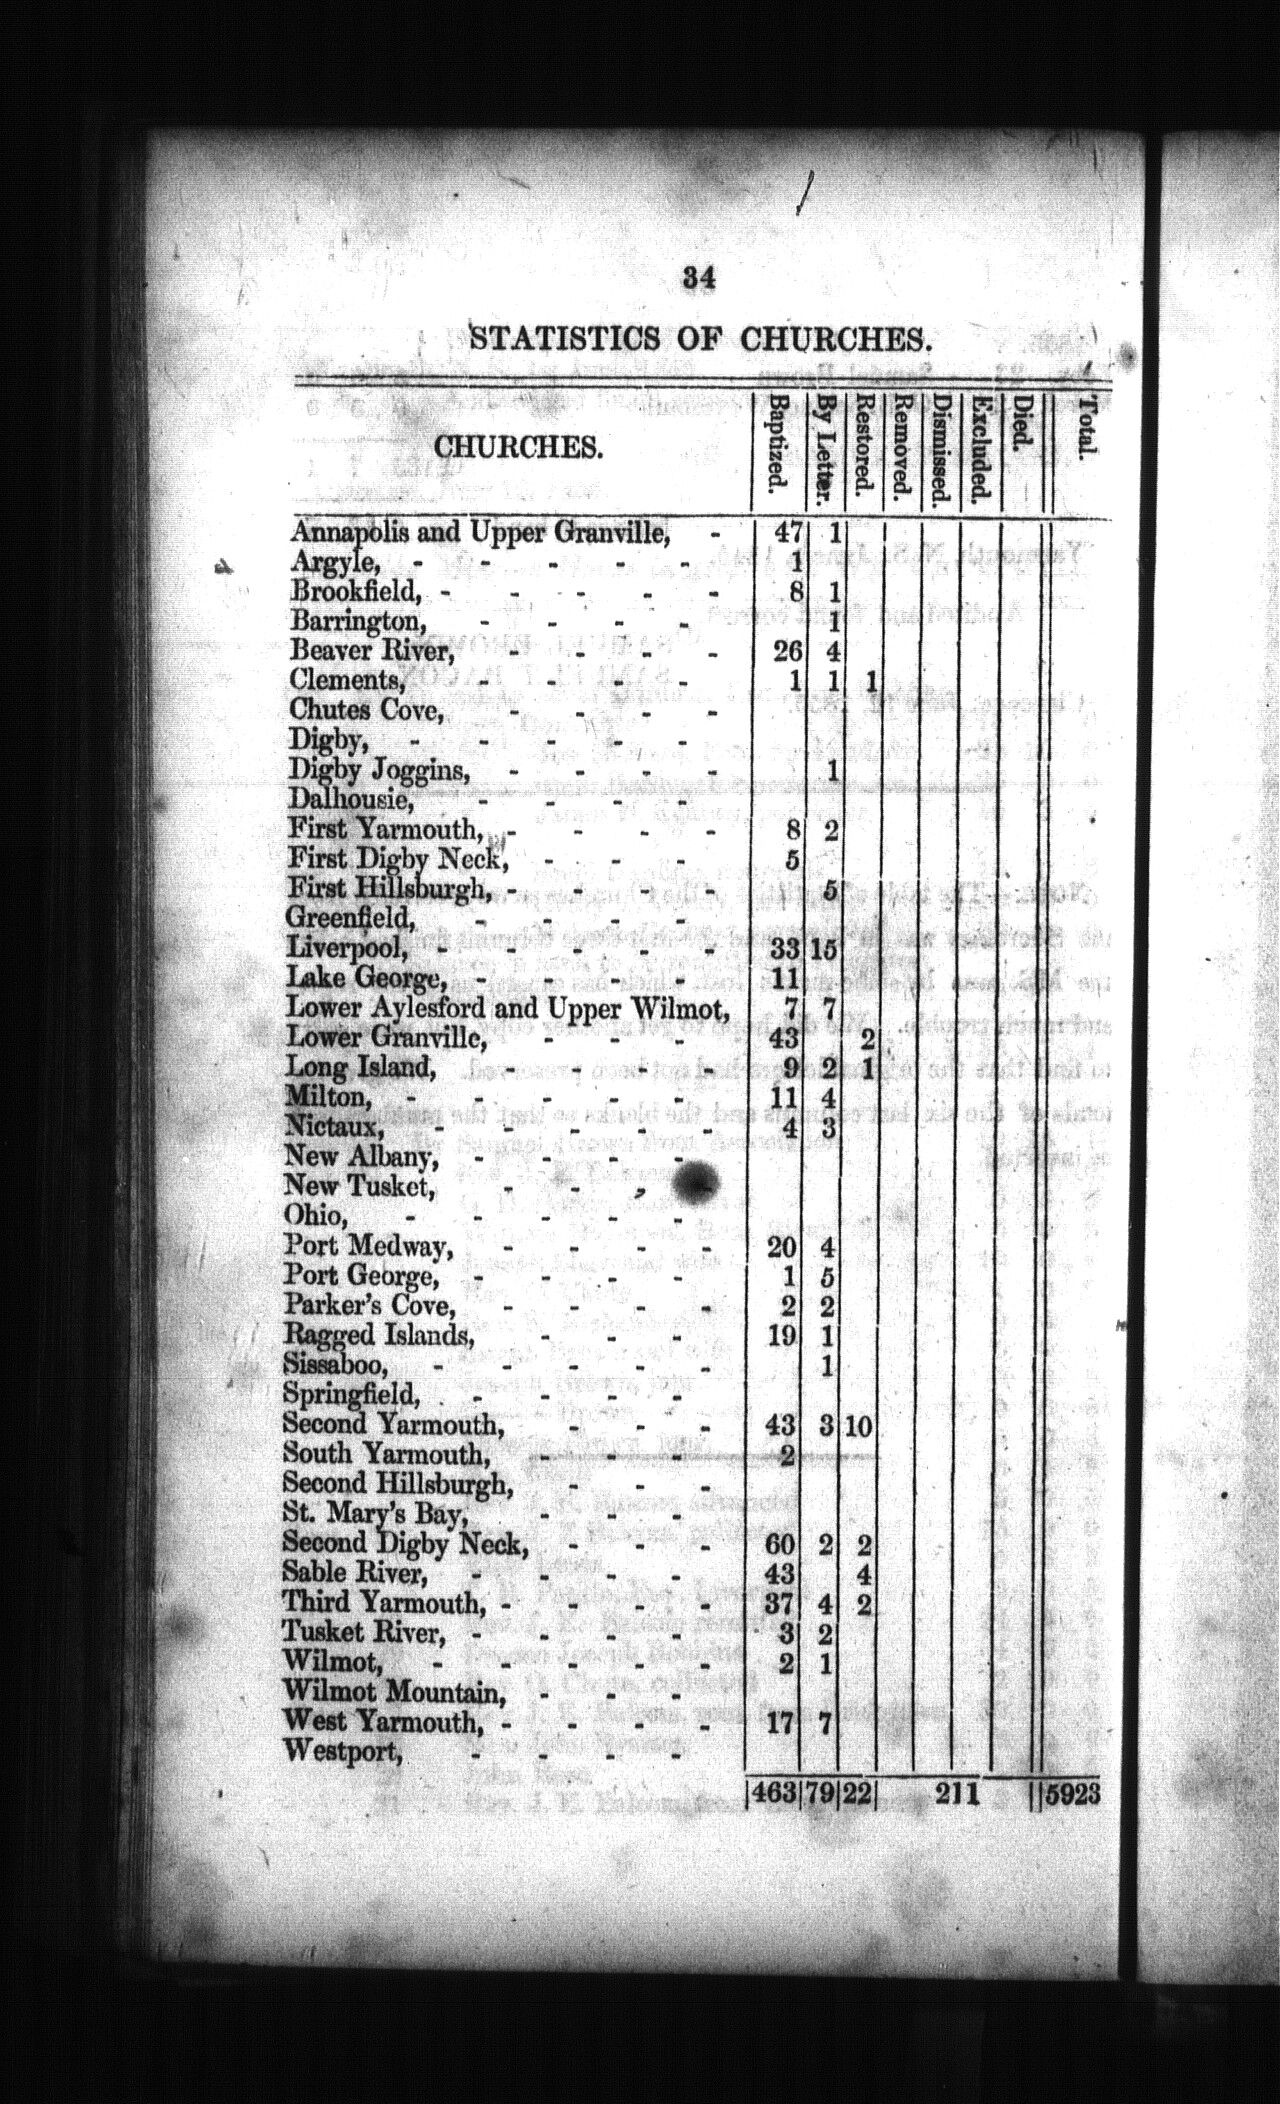 34
STATISTICS OF CHURCHES.
CHURCHES. Baptized. By Letter. Restored. Removed. Dismissed. Excluded. Died. Total.
Annapolis and Upper Granville, - 47 1
Argyle, - - - - - 1
Brookfield, - - - - - 8 1
Barrington, - - - - 1
Beaver River, - - - - 26 4
Clements, - - - - 1 1 1
Chutes Cove, - - - -
Digby, - - - - -
Digby Joggins, - - - - 1
Dalhousie, - - - -
First Yarmouth, - - - - 8 2
First Digby Neck, - - - 5
First Hillsburgh, - - - - 5
Greenfield, - - - -
Liverpool, - - - - - 33 15
Lake George, - - - - 11
Lower Aylesford and Upper Wilmot, 7 7
Lower Granville, - - - 43 2
Long Island, - - - - 9 2 1
Milton, - - - - - 11 4
Nictaux, - - - - - 4 3
New Albany, - - - -
New Tusket, - - - -
Ohio, - - - - -
Port Medway, - - - - 20 4
Port George, - - - - 1 5
Parker's Cove, - - - - 2 2
Ragged Islands, - - - 19 1
Sissaboo, - - - - - 1
Springfield, - - - -
Second Yarmouth, - - - 43 3 10
South Yarmouth, - - - 2
Second Hillsburgh, - - -
St. Mary's Bay, - - -
Second Digby Neck, - - - 60 2 2
Sable River, - - - - 43 4
Third Yarmouth, - - - - 37 4 2
Tusket River, - - - - 3 2
Wilmot, - - - - - 2 1
Wilmot Mountain, - - -
West Yarmouth, - - - - 17 7
Westport, - - - -
463 79 22 211 5923